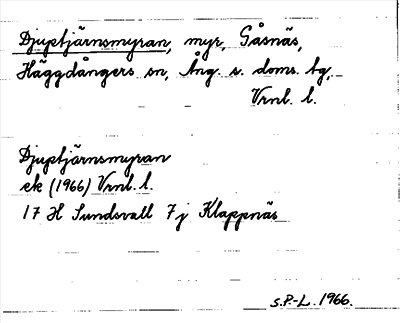 Djuptjärnsmyran, myr, Gåsnäs,
Häggdångers sn, Ång. s. doms. tg,
Vrnl. l.
Djuptjärnsmyran
ek (1966) Vrnl. l.
17 H Sundsvall 7 j Klappnäs
S.P.-L. 1966.